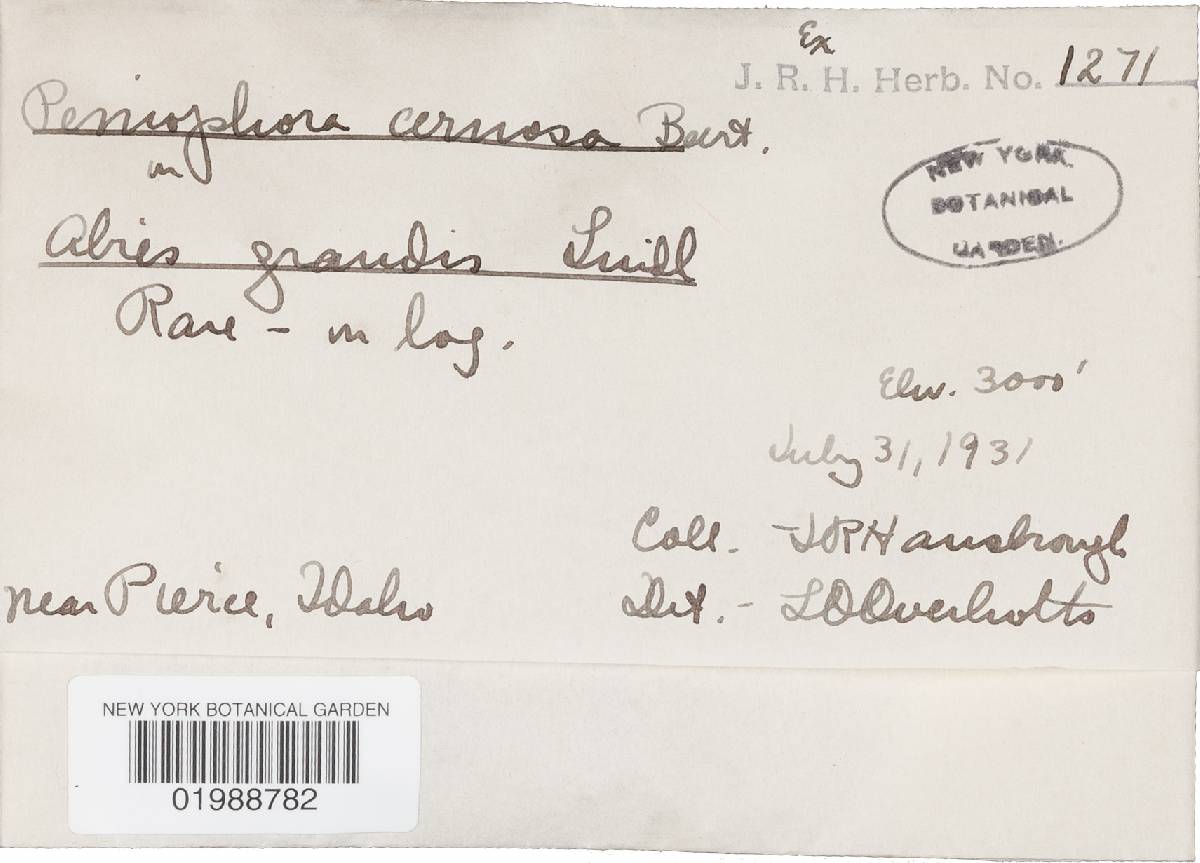 Ex
J. R. H. Herb. No. 1271
Peniophora carnosa Burt.
on
NEW YORK
BOTANICAL
GARDEN.
Abies grandis Lindl
Rare - on log.
Elev. 3000'
July 31, 1931
Coll. - JRHansbrough
near Pierce, Idaho
Det. - LOOverholts
NEW YORK BOTANICAL GARDEN
01988782